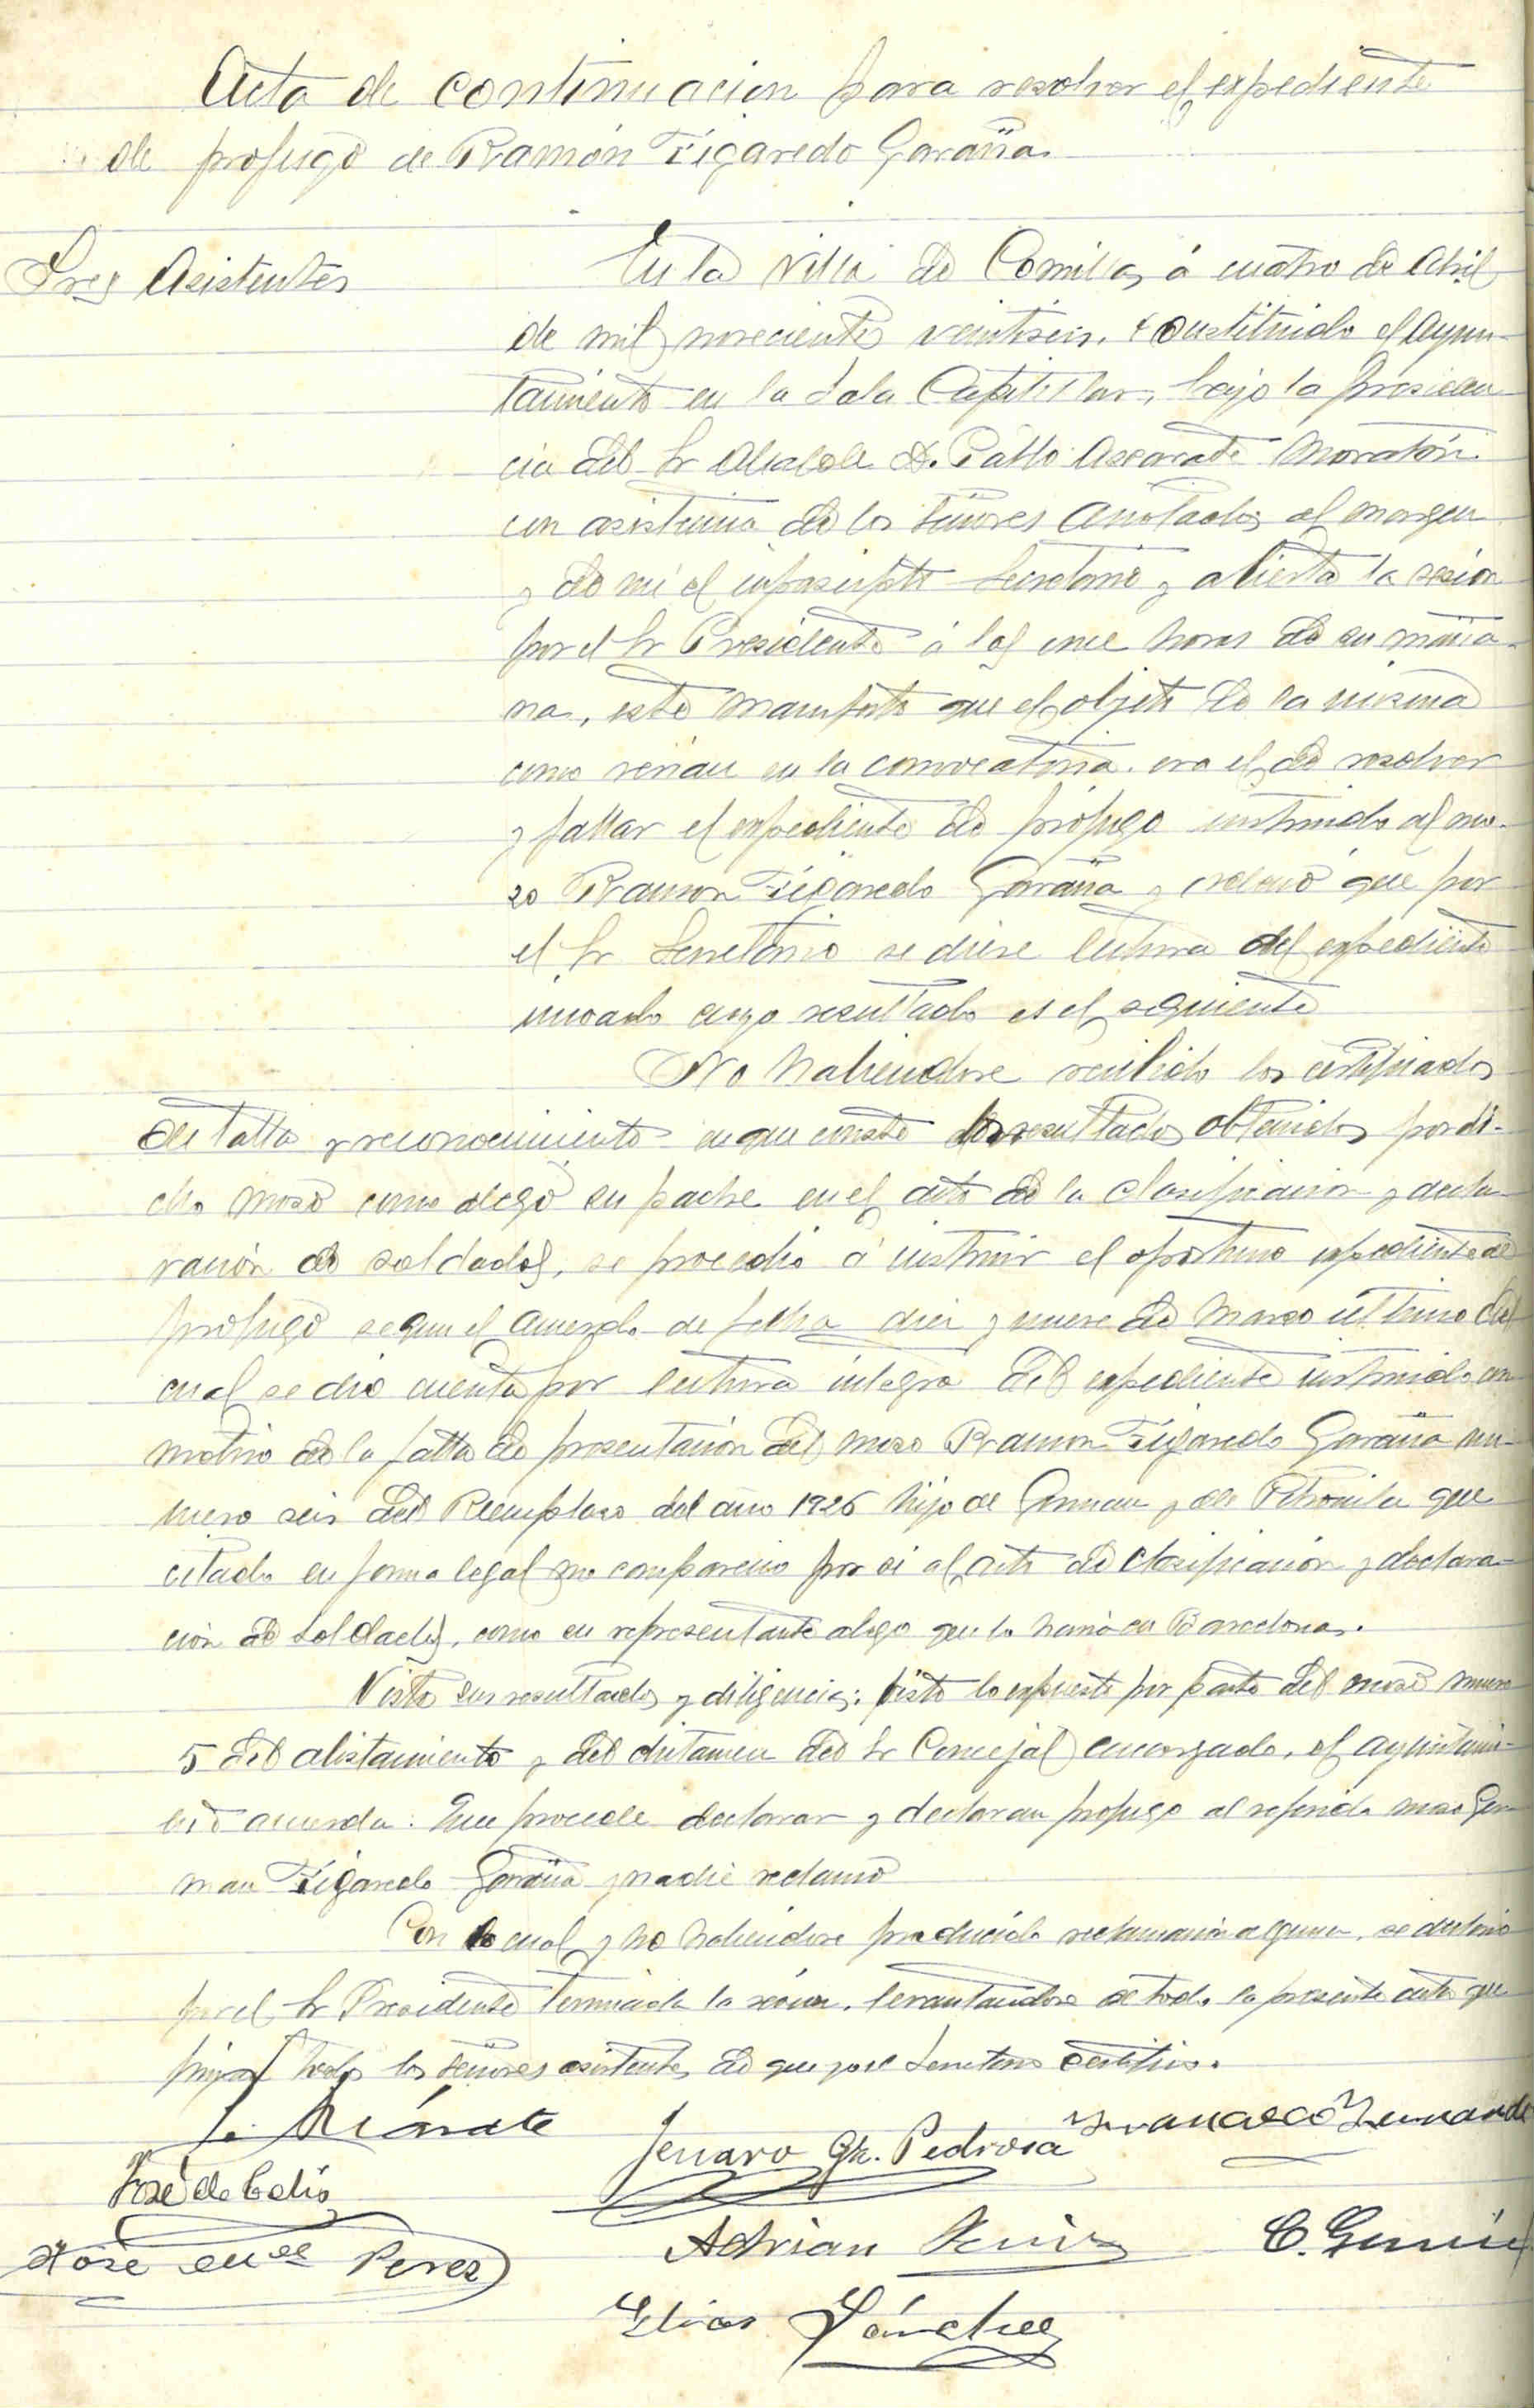 Acta de continuacion para resolver el expediente
de profugo de Ramón Figaredo Garaña
Sres Asistentes
En la villa de Comillas á cuatro de Abril
de mil novecientos veintiseis, constituido el Ayun-
tamiento en la Sala Capitular, bajo la presiden
cia del Sr Alcalde D. Pablo Azcarate Moratón
con asistencia de los señores anotados al margen
y de mi el infrascripto Secretario y abierta la sesion
por el Sr Presidente á las once horas de su maña-
na, este manifesto que el objeto de la misma
como venian en la convocatoria era el de resolver
y fallar el expediente de prófugo instruido al mo-
zo Ramon Figaredo Garaña y ordenó que por
el Sr Secretario se diese lectura del expediente
incoado cuyo resultado es el siguiente
No habiendose recibido los certificados
de talla y reconocimiento en que conste los resultados obtenidos por di-
cho mozo como alegó su padre en el acto de la clasificacion y decla
ración de soldados, se procedió á instruir el oportuno expediente de
profugo segun el acuerdo de fecha diez y nueve de Marzo último del
cual se dió cuenta por lectura integra del expediente instruido con
motivo de la falta de presentación del mozo Ramon Figaredo Garaña nu-
mero seis del Reemplazo del año 1926 hijo de German y de Petronila que
citado en forma legal no comparecio por si al acto de clasificación y declara-
ción de soldados, como su representante alego que lo haria en Barcelona.
Visto sus resultados y diligencias; visto lo expuesto por parte del mozo numero
5 del alistamiento y del dictamen del Sr Concejal encargado, el ayuntami-
ento acuerda: Que procede declarar y declaran profugo al referido mozo Ger
man Figaredo Garaña y nadie reclamó
Con lo cual y no habiendose producido reclamación alguna, se declaró
por el Sr Presidente terminada la sesion, levantandose de todo la presente acta que
firman todos los señores asistentes de que yo el Secretario certifico.
Jenaro Gz. Pedrosa
Francisco Fernandez
José de Celis
Adrian Ruiz
José Manuel Perez
Elias Sánchez